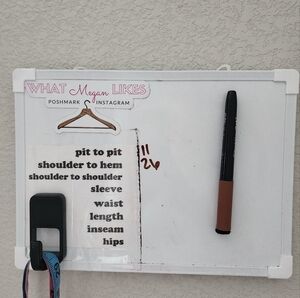 WHAT Megan LIKES
POSHMARK INSTAGRAM
pit to pit 11
shoulder to hem 26
shoulder to shoulder
sleeve
waist
length
inseam
hips